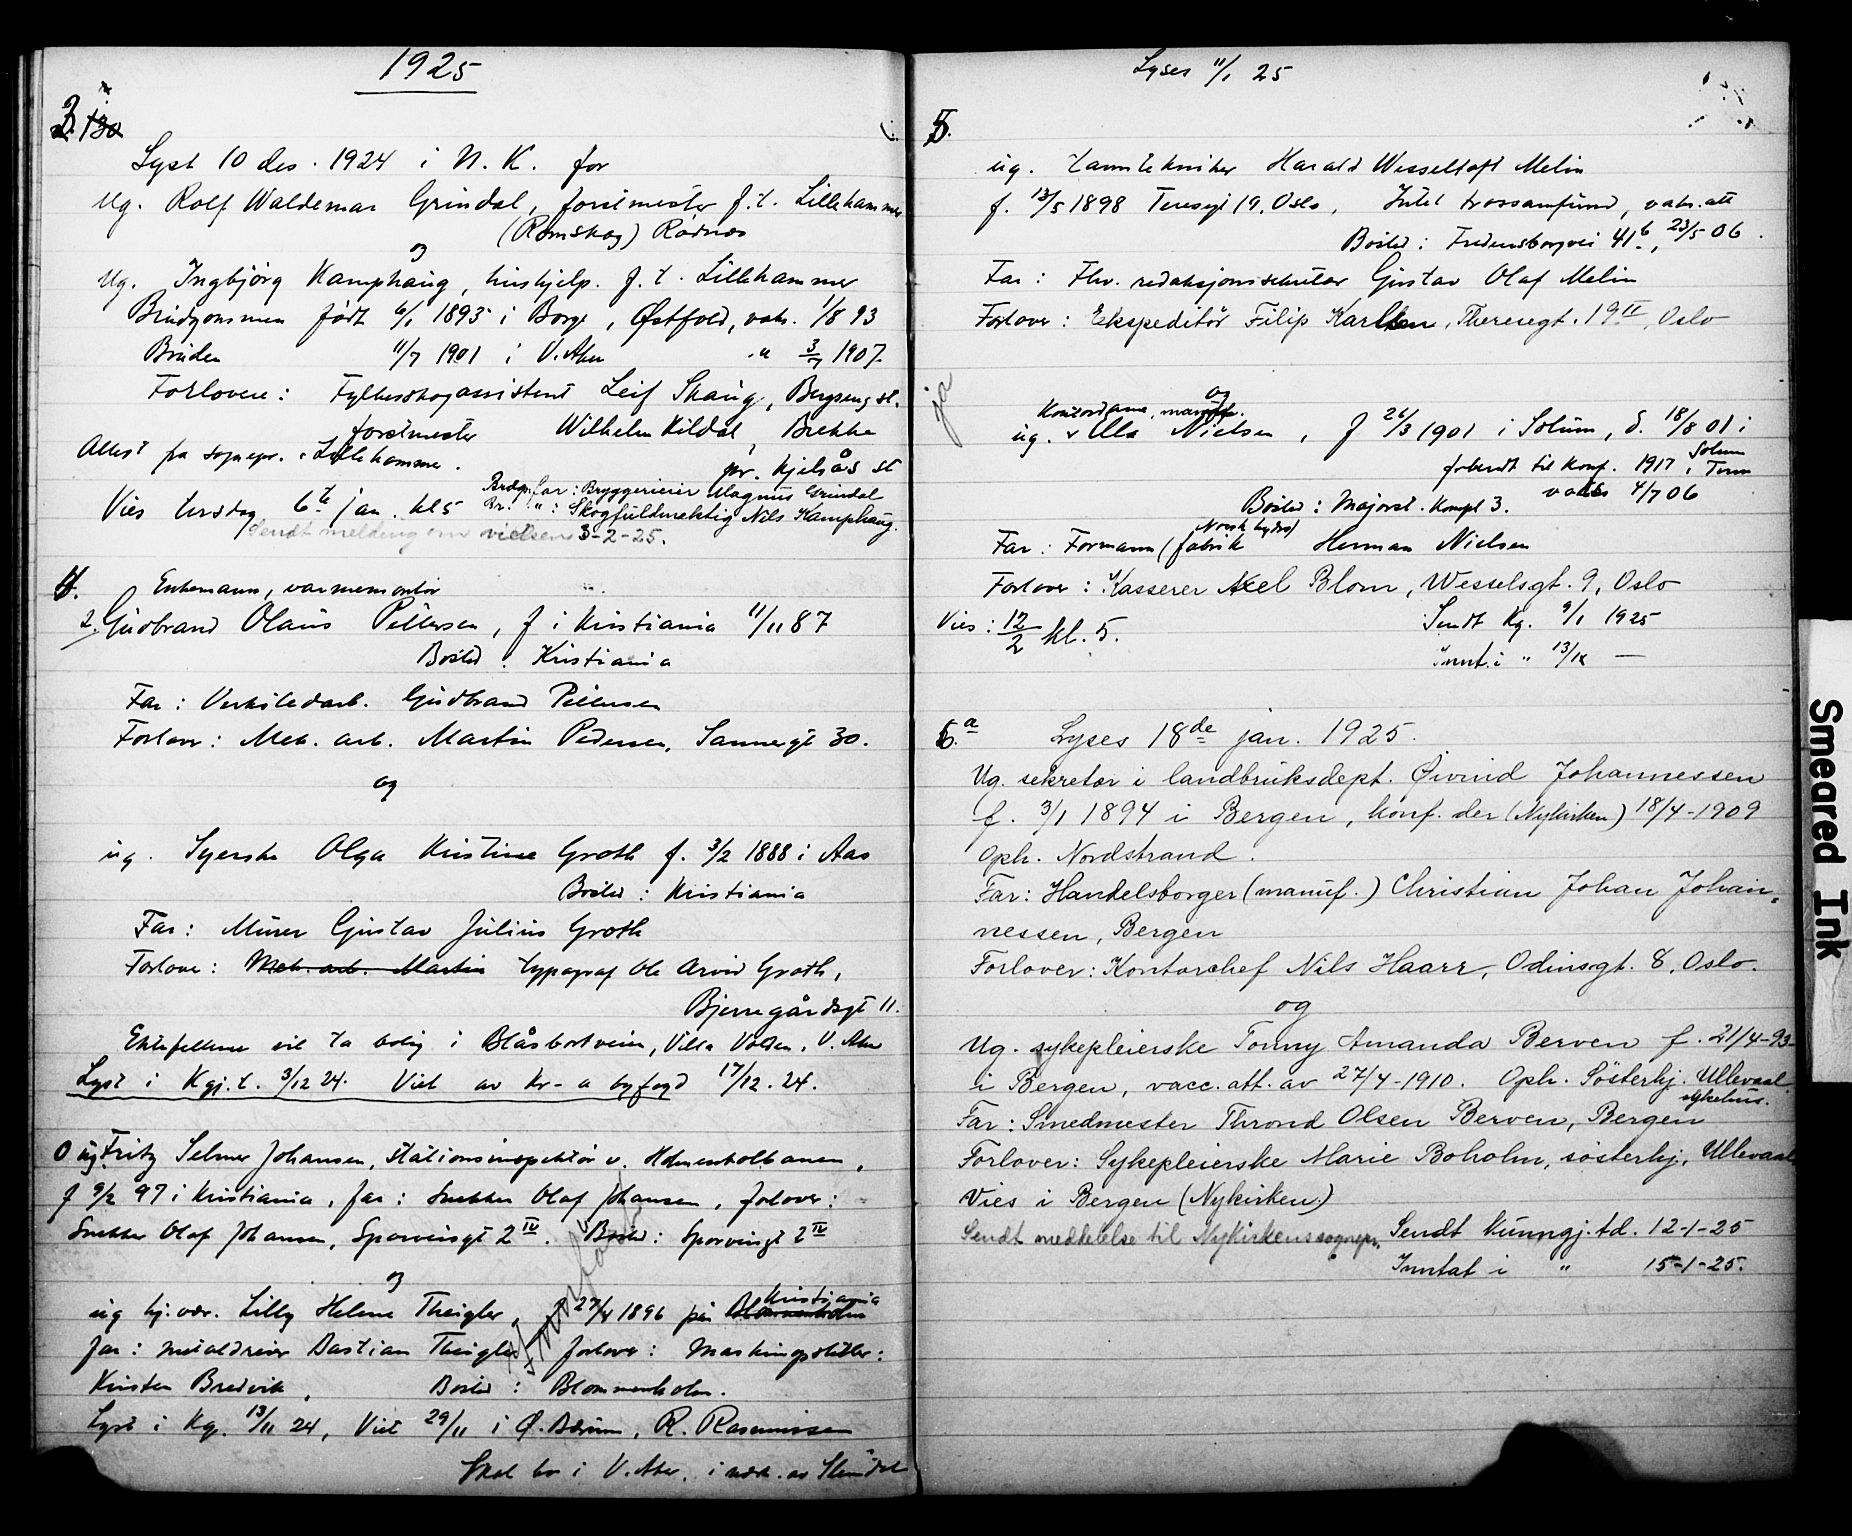 1925
3.
Lyst 10 des. 1924 i N. K. for
Ug. Rolf Waldemar Grindal, forstmester f. t. Lillehammer
(Rømskog) Rødnes
og
Ug. Ingbjörg Kamphaug, hushjelp. f. t. Lillehammer
Brudgommen født 6/1 1893 i Borge, Østfold, vaks. 1/8 93
Bruden 11/7 1901 i V. Aker " 3/7 1907.
Forlovere: Fylkesskogassistent Leif Skaug, Bergseng st.
forstmester Wilhelm Kildal, Brekke
pr. Kjelsås st
Attest fra sognepr. i Lillehammer.
Brudg. far: Bryggerieier Magnus Grindal
Br. " : Skogfuldmektig Nils Kamphaug.
Vies tirsdag 6te jan. kl 5
Sendt melding om vielsen 3-2-25.
4. Enkemann, varmemontör
2. Gudbrand Olaus Pettersen, f i Kristiania 11/11 87
Bosted: Kristiania
Far: Verkstedarb. Gudbrand Pettersen
Forlover: Mek. arb. Martin Pedersen, Sannergt 30.
og
ug. Syerske Olga Kristine Groth f. 3/2 1888 i Aas
Bosted: Kristiania
Far: Murer Gustav Julius Groth
Forlover: Mek. arb. Martin typograf Ole Arvid Groth,
Bjerregårdsgt 11.
Ektefellene vil ta bolig i Blåsbortveien, Villa Volden, V. Aker
Lyst i Kgj. t. 3/12 24. Viet av Kr-a byfogd 17/12. 24.
0 ug Fritz Selmer Johansen, Stationsinspektör v. Holmenkolbanen,
f 9/2 97 i Kristiania, far: Snekker Olaf Johansen, forlover:
Snekker Olaf Johansen, Sporveisgt 2 IV. Bosted: Sporveisgt 2 IV
og
ug hj. vær. Lilly Helene Theigler, f 27/8 1896 på Blommenholm Kristiania
far: metaldreier Bastian Theigler forlover: Maskinopsetter:
Kristen Bredvik, Bosted: Blommenholm.
Lyst i Kg. 13/11 24, Viet 29/11 i Ø. Bærum, R. Rasmussen
Skal bo i V. Aker, i nærh. av Slemdal
Lyses 11/1 25
5.
ug. tanntekniker Harald Wesseltoft Melin
f. 13/5 1898 Teresegt 19, Oslo, Intet trossamfund, vaks. att
Bosted: Fredensborgvei 41 b, 23/5 06.
Far: Fhv. redaksjonssekretær Gustav Olaf Melin
Forlover: Ekspeditör Filip Karlsen, Theresegt. 19 II, Oslo
og
ja
Kontordame, manuf.
ug. Ella Nielsen, f 26/3 1901 i Solum, d. 18/8 01 i Solum
forberedt til konf. 1917 i Solum
vaks 4/7 06
Bosted: Majorst. kompl 3.
Far: Formann (Norsk hydro) fabrik Herman Nielsen
Forlover: Kasserer Axel Blom, Wesselsgt. 9, Oslo
Vies: 12/2 kl. 5.
Sendt Kg. 9/1 1925
Innt. i " 13/1 —
6.a Lyses 18de jan. 1925.
Ug. sekretær i landbruksdept. Øivind Johannessen
f. 3/1 1894 i Bergen, konf. der (Nykirken) 18/4-1909
Oph. Nordstrand.
Far: Handelsborger (manuf.) Christian Johan Johan-
nessen, Bergen
Forlover: Kontorchef Nils Haarr, Odinsgt. 8, Oslo.
og
Ug. sykepleierske Tonny Amanda Berven f. 21/4-93
i Bergen, vacc. att. av 27/4-1910. Oph. Søsterhj. Ullevaal
sykehus.
Far: Smedmester Thrond Olsen Berven, Bergen
Forlover: Sykepleierske Marie Boholm, søsterhj. Ullevaal
Vies i Bergen (Nykirken)
Sendt meddelelse til Nykirkens sognepr. Sendt Kunngj. td. 12-1-25
Inntat i " 15-1-25.
Smeared Ink